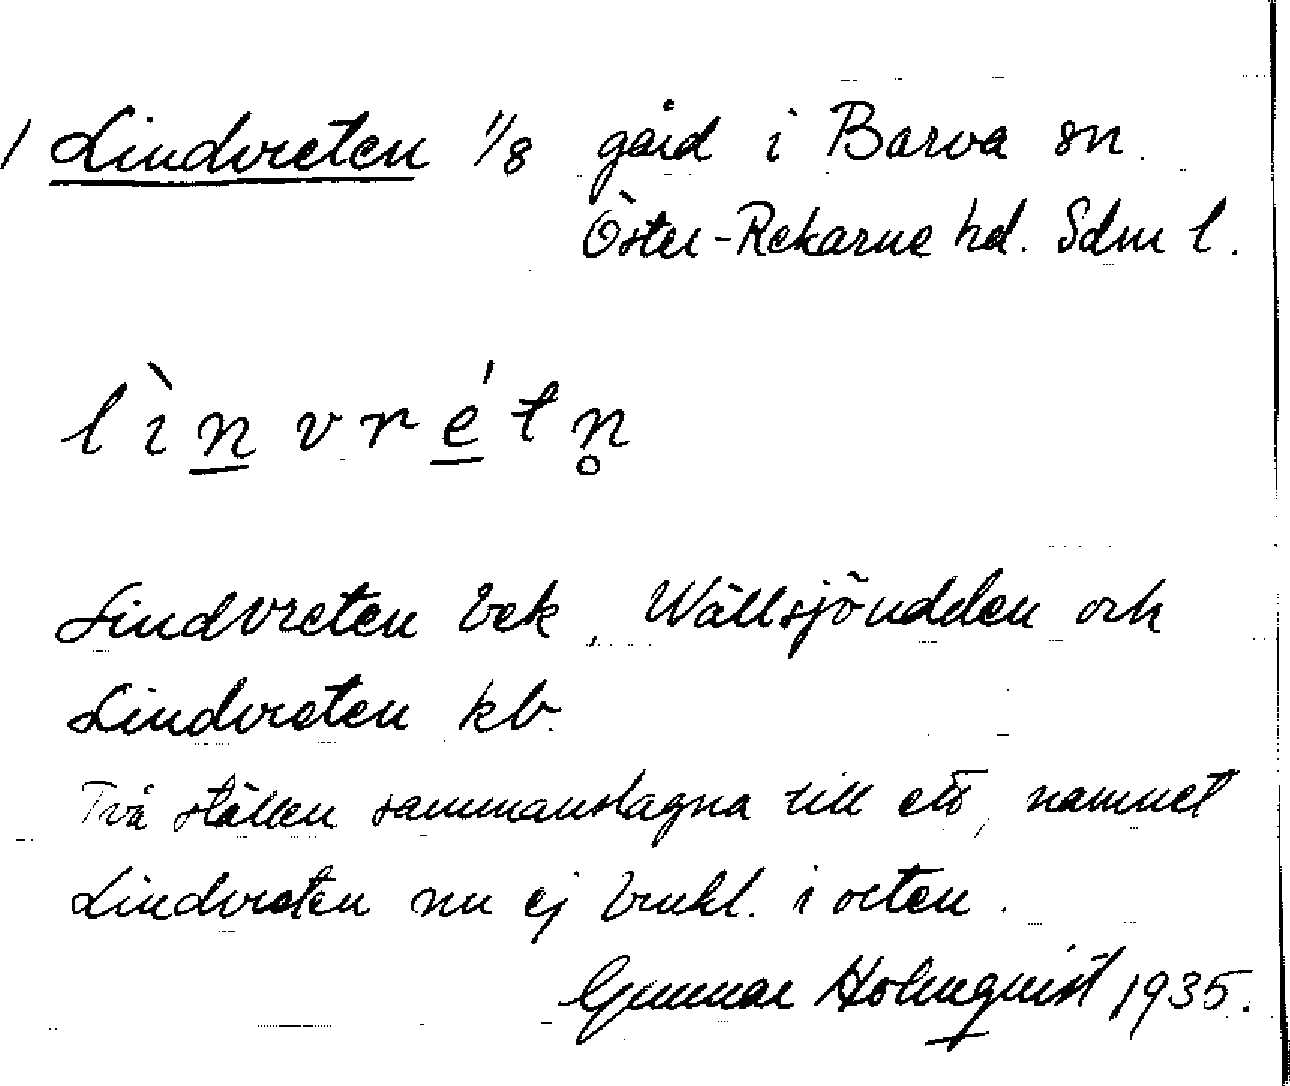 / Lindvreten 1/8 gård i Barva sn.
Öster-Rekarne hd. Sdm l.
lìnvrétn̥
Lindvreten bek, Wällsjöudden och
Lindvreten kb.
Två ställen sammanslagna till ett, namnet
Lindvreten nu ej brukl. i orten.
Gunnar Holmquist 1935.